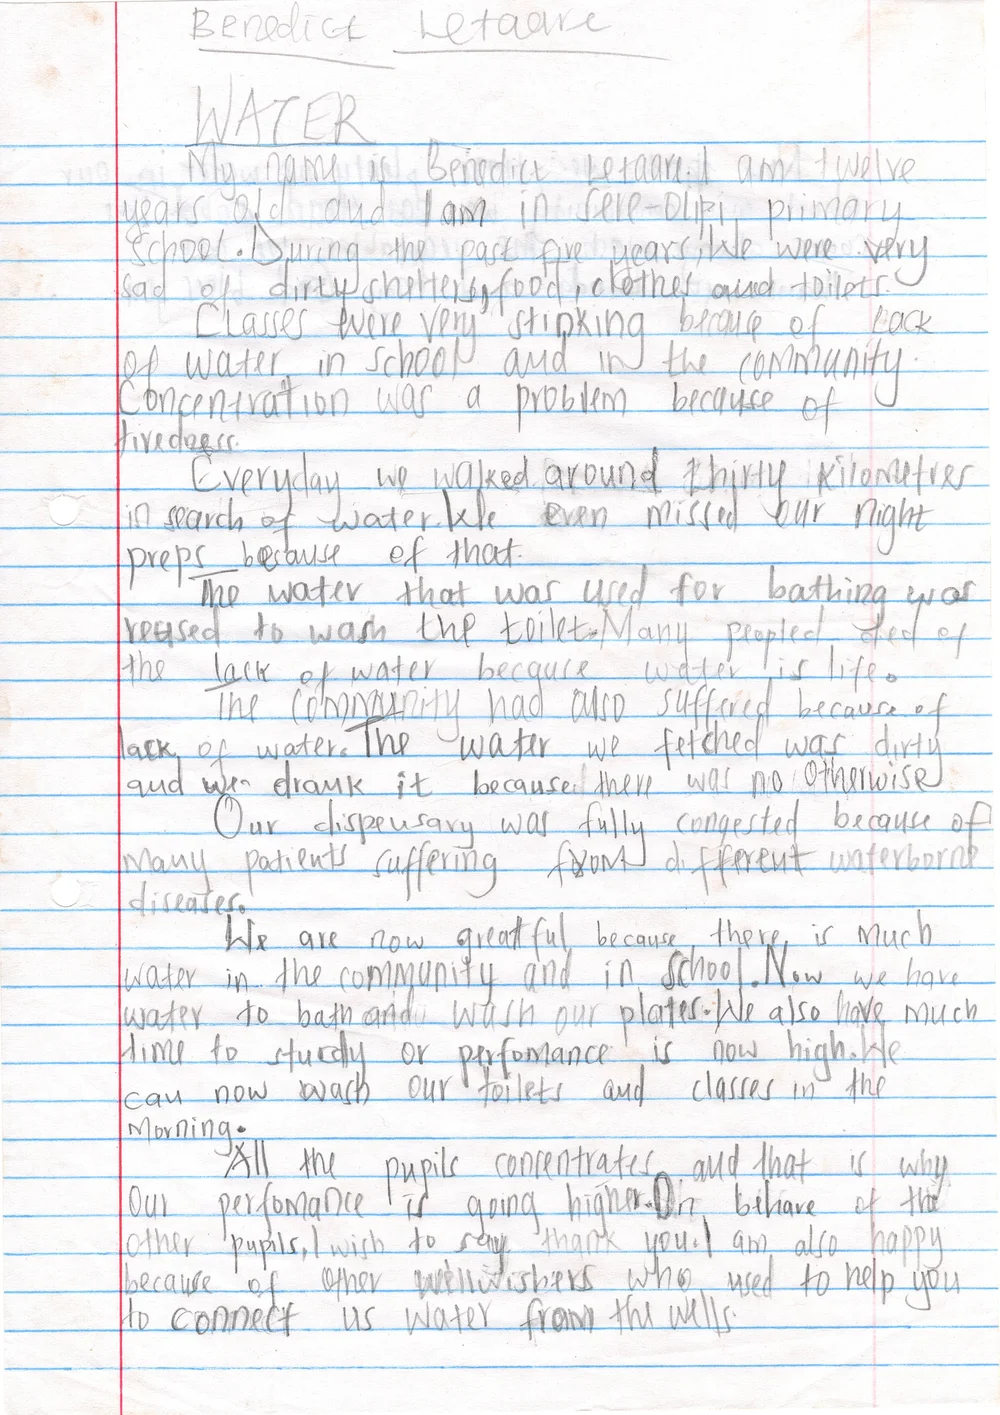 Benedict Letaare
WATER
My name is Benedict Letaare.I am twelve
years old and I am in Sere-olipi primary
school.During the past five years,We were very
sad of dirty shelters,food,clothes and toilets.
Classes were very stinking because of lack
of water in school and in the community.
Concentration was a problem because of
tiredness.
Everyday we walked around thirty kilometres
in search of water.We even missed our night
preps because of that.
The water that was used for bathing was
reused to wash the toilet.Many peopled died of
the lack of water because water is life.
The community had also suffered because of
lack of water.The water we fetched was dirty
and we drank it because there was no otherwise
Our dispensary was fully congested because of
many patients suffering from different waterborne
diseases.
We are now greatful because there is much
water in the community and in school.Now we have
water to bath and wash our plates.We also have much
time to sturdy or perfomance is now high.We
can now wash our toilets and classes in the
morning.
All the pupils concentrates and that is why
our perfomance is going higher.On behave of the
other pupils,I wish to say thank you.I am also happy
because of other wellwishers who used to help you
to connect us water from the wells.